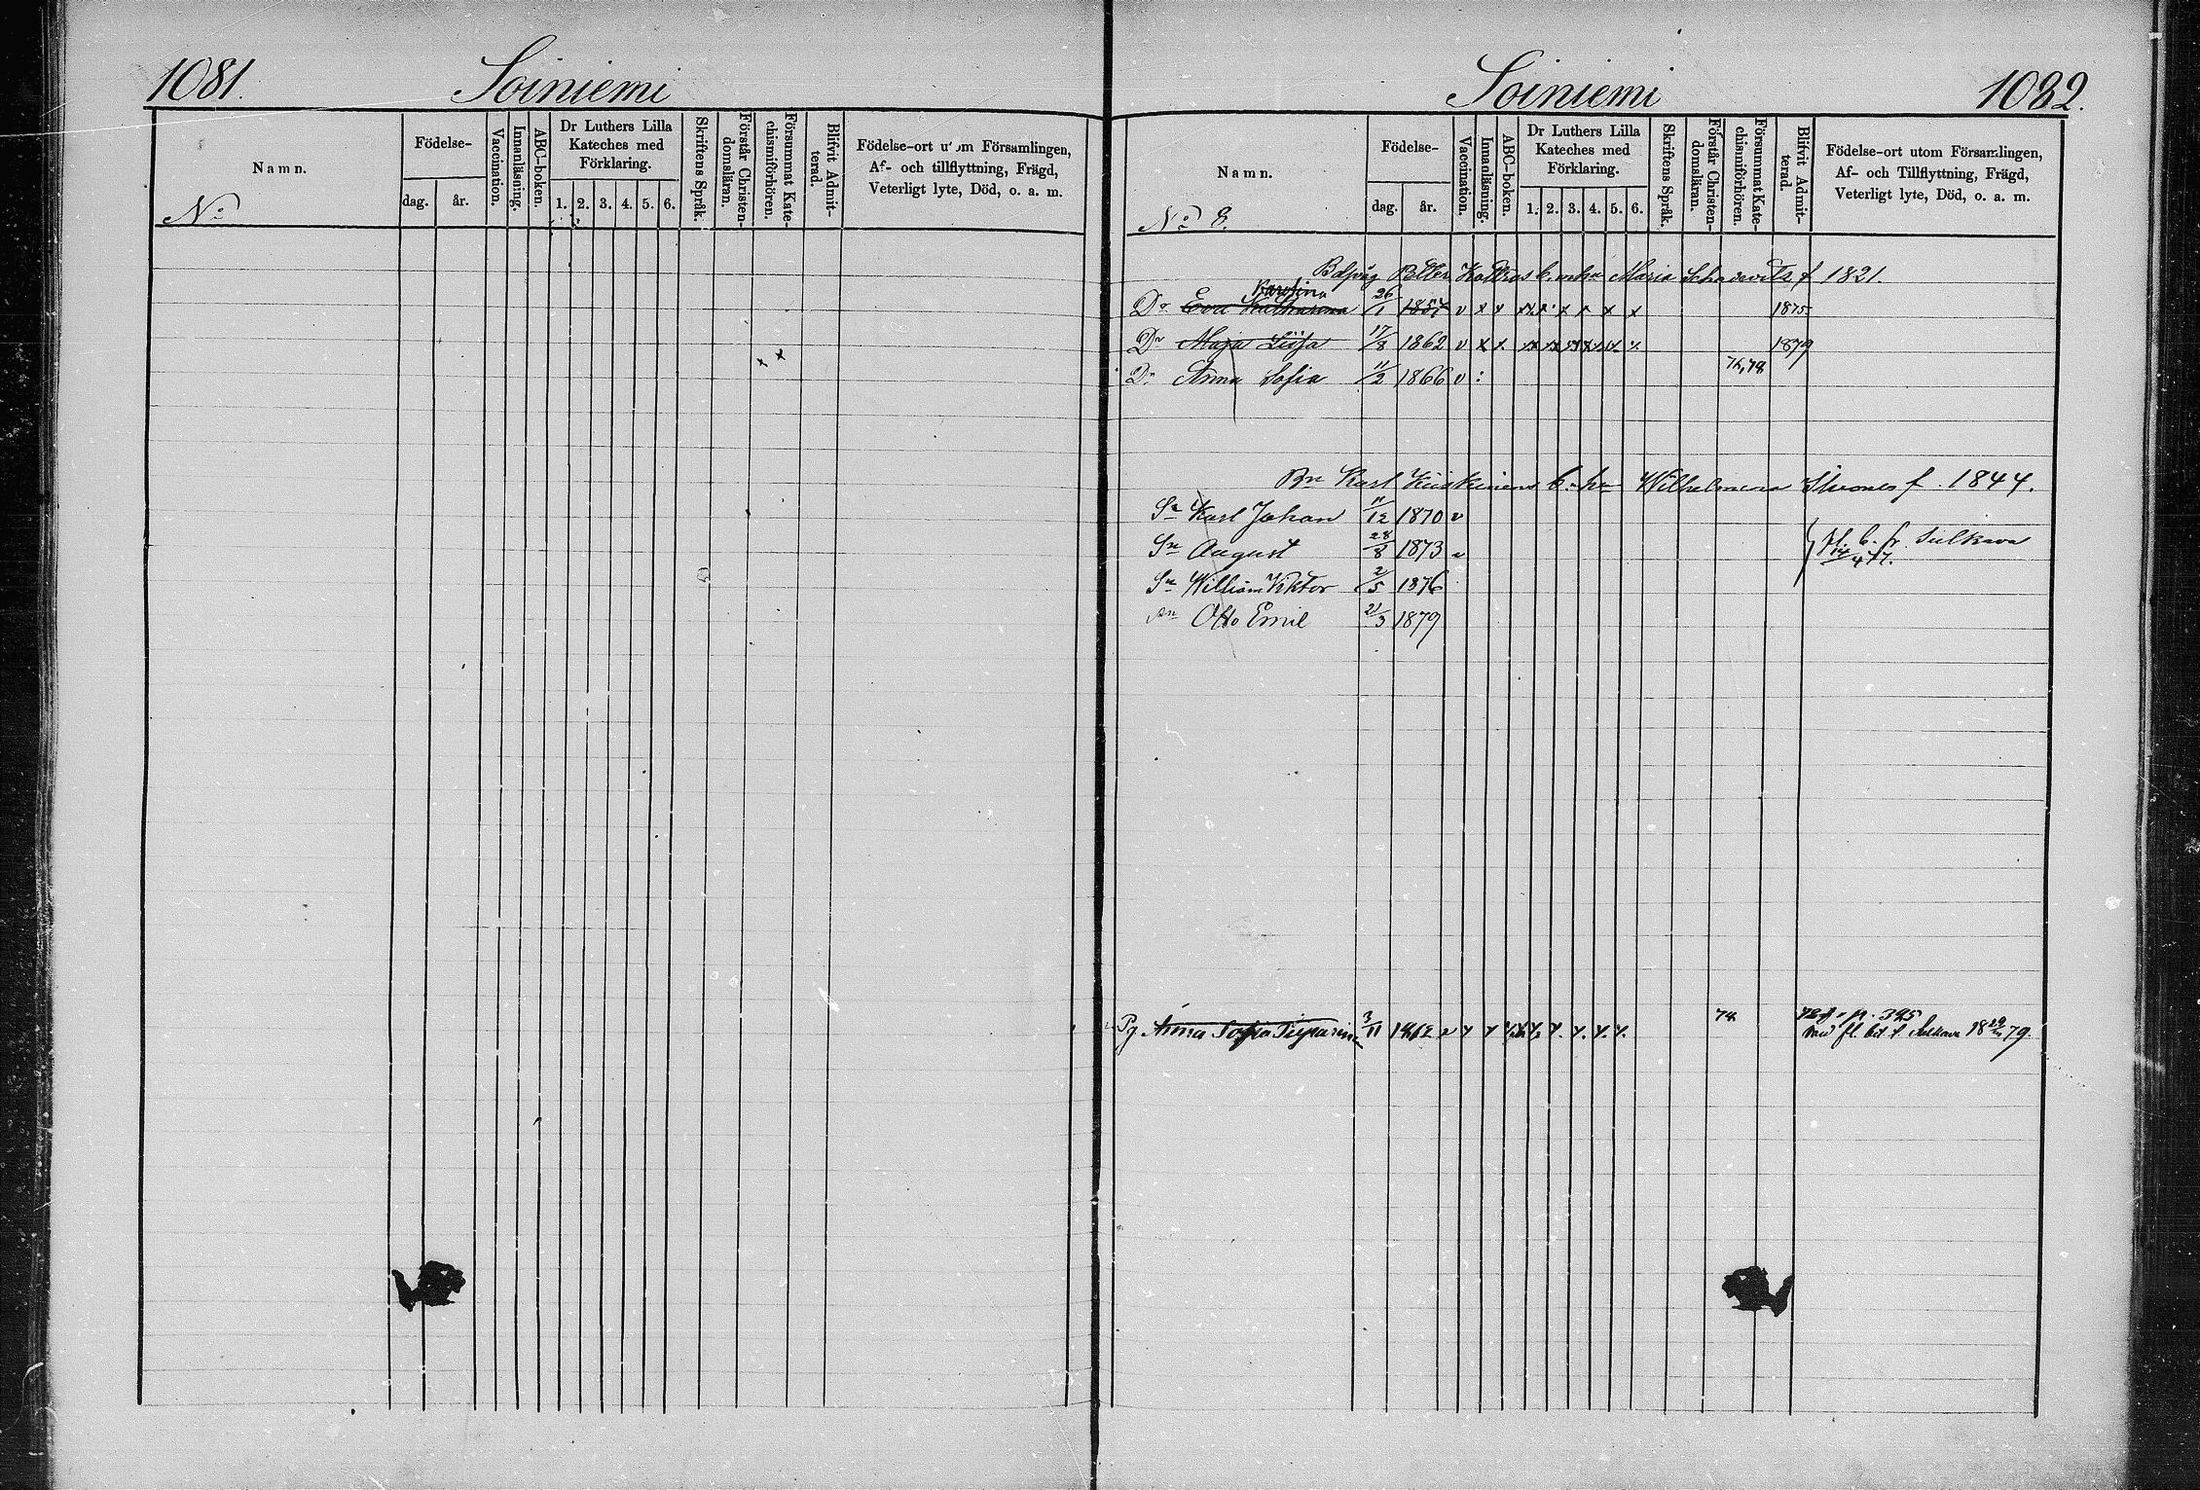 1081. Soiniemi
Namn.
No
Födelse-
dag. år.
Vaccination.
Innanläsning.
ABC-boken.
Dr Luthers Lilla
Kateches med
Förklaring.
1. 2. 3. 4. 5. 6.
Skriftens Språk.
Förstår Christen-
domsläran.
Försummat Kate-
chismiförhören.
Blifvit Admit-
terad.
Födelse-ort utom Församlingen,
Af- och tillflyttning, Frägd,
Veterligt lyte, Död, o. a. m.
x x
Soiniemi 1082.
Namn.
No 8.
Födelse-
dag. år.
Vaccination.
Innanläsning.
ABC-boken.
Dr Luthers Lilla
Kateches med
Förklaring.
1. 2. 3. 4. 5. 6.
Skriftens Språk.
Förstår Christen-
domsläran.
Försummat Kate-
chismiförhören.
Blifvit Admit-
terad.
Födelse-ort utom Församlingen,
Af- och Tillflyttning, Frägd,
Veterligt lyte, Död, o. a. m.
Petter Maria f 1821.
Karolina
Dr Eva Katharina 26/1 1857 v x x x x x x x 1875
Dr Maja Liisa 17/8 1862 v x x 1879
Dr Anna Sofia 11/2 1866 v : 76,78
Bn Karl Kiiskinens b. hu Wilhelmina f. 1844.
Sn Karl Johan 11/12 1870 v
Sn August 28/8 1873 v
fl. b. fr. Sulkava
Sn William Viktor 2/5 1876
Sn Otto Emil 21/3 1879
Pg Anna Sofia 3/11 78 p. 325
fl. bet. t. Sulkava 18 79.